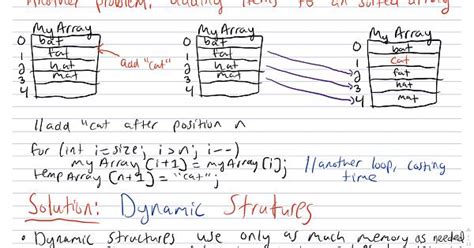 Another problem: adding items to an sorted array
MyArray MyArray MyArray
0 bat
1 fat
2 hat
3 mat
4
add "cat"
0 bat
1 fat
2 hat
3 mat
4
0 bat
1 cat
2 fat
3 hat
4 mat
//add "cat after position n
for (int i=size; i>n; i--)
myArray [i+1] = myArray[i];
tempArray [n+1] = "cat";
//another loop, costing
time
Solution: Dynamic Strutures
• Dynamic structures use only as much memory as needed